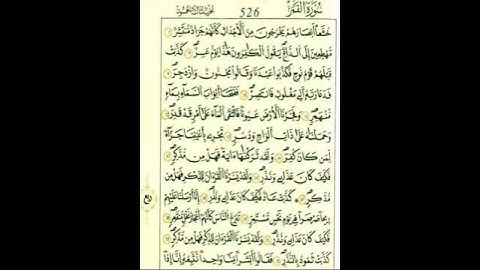 سُورَةُ القَمَر
526
خُشَّعًا أَبْصَارُهُمْ يَخْرُجُونَ مِنَ الْأَجْدَاثِ كَأَنَّهُمْ جَرَادٌ مُّنتَشِرٌ
مُّهْطِعِينَ إِلَى الدَّاعِ يَقُولُ الْكَٰفِرُونَ هَٰذَا يَوْمٌ عَسِرٌ كَذَّبَتْ
قَبْلَهُمْ قَوْمُ نُوحٍ فَكَذَّبُوا عَبْدَنَا وَقَالُوا مَجْنُونٌ وَازْدُجِرَ
فَدَعَا رَبَّهُ أَنِّي مَغْلُوبٌ فَانتَصِرْ فَفَتَحْنَا أَبْوَابَ السَّمَاءِ بِمَاءٍ
مُّنْهَمِرٍ وَفَجَّرْنَا الْأَرْضَ عُيُونًا فَالْتَقَى الْمَاءُ عَلَىٰ أَمْرٍ قَدْ قُدِرَ
وَحَمَلْنَٰهُ عَلَىٰ ذَاتِ أَلْوَٰحٍ وَدُسُرٍ تَجْرِي بِأَعْيُنِنَا جَزَاءً
لِّمَن كَانَ كُفِرَ وَلَقَد تَّرَكْنَٰهَا ءَايَةً فَهَلْ مِن مُّدَّكِرٍ
فَكَيْفَ كَانَ عَذَابِي وَنُذُرِ وَلَقَدْ يَسَّرْنَا الْقُرْءَانَ لِلذِّكْرِ فَهَلْ مِن
مُّدَّكِرٍ كَذَّبَتْ عَادٌ فَكَيْفَ كَانَ عَذَابِي وَنُذُرِ إِنَّا أَرْسَلْنَا عَلَيْهِمْ
رِيحًا صَرْصَرًا فِي يَوْمِ نَحْسٍ مُّسْتَمِرٍّ تَنزِعُ النَّاسَ كَأَنَّهُمْ أَعْجَازُ نَخْلٍ مُّنقَعِرٍ
فَكَيْفَ كَانَ عَذَابِي وَنُذُرِ وَلَقَدْ يَسَّرْنَا الْقُرْءَانَ لِلذِّكْرِ فَهَلْ مِن مُّدَّكِرٍ
كَذَّبَتْ ثَمُودُ بِالنُّذُرِ فَقَالُوا أَبَشَرًا مِّنَّا وَٰحِدًا نَّتَّبِعُهُ إِنَّا إِذًا
ربع